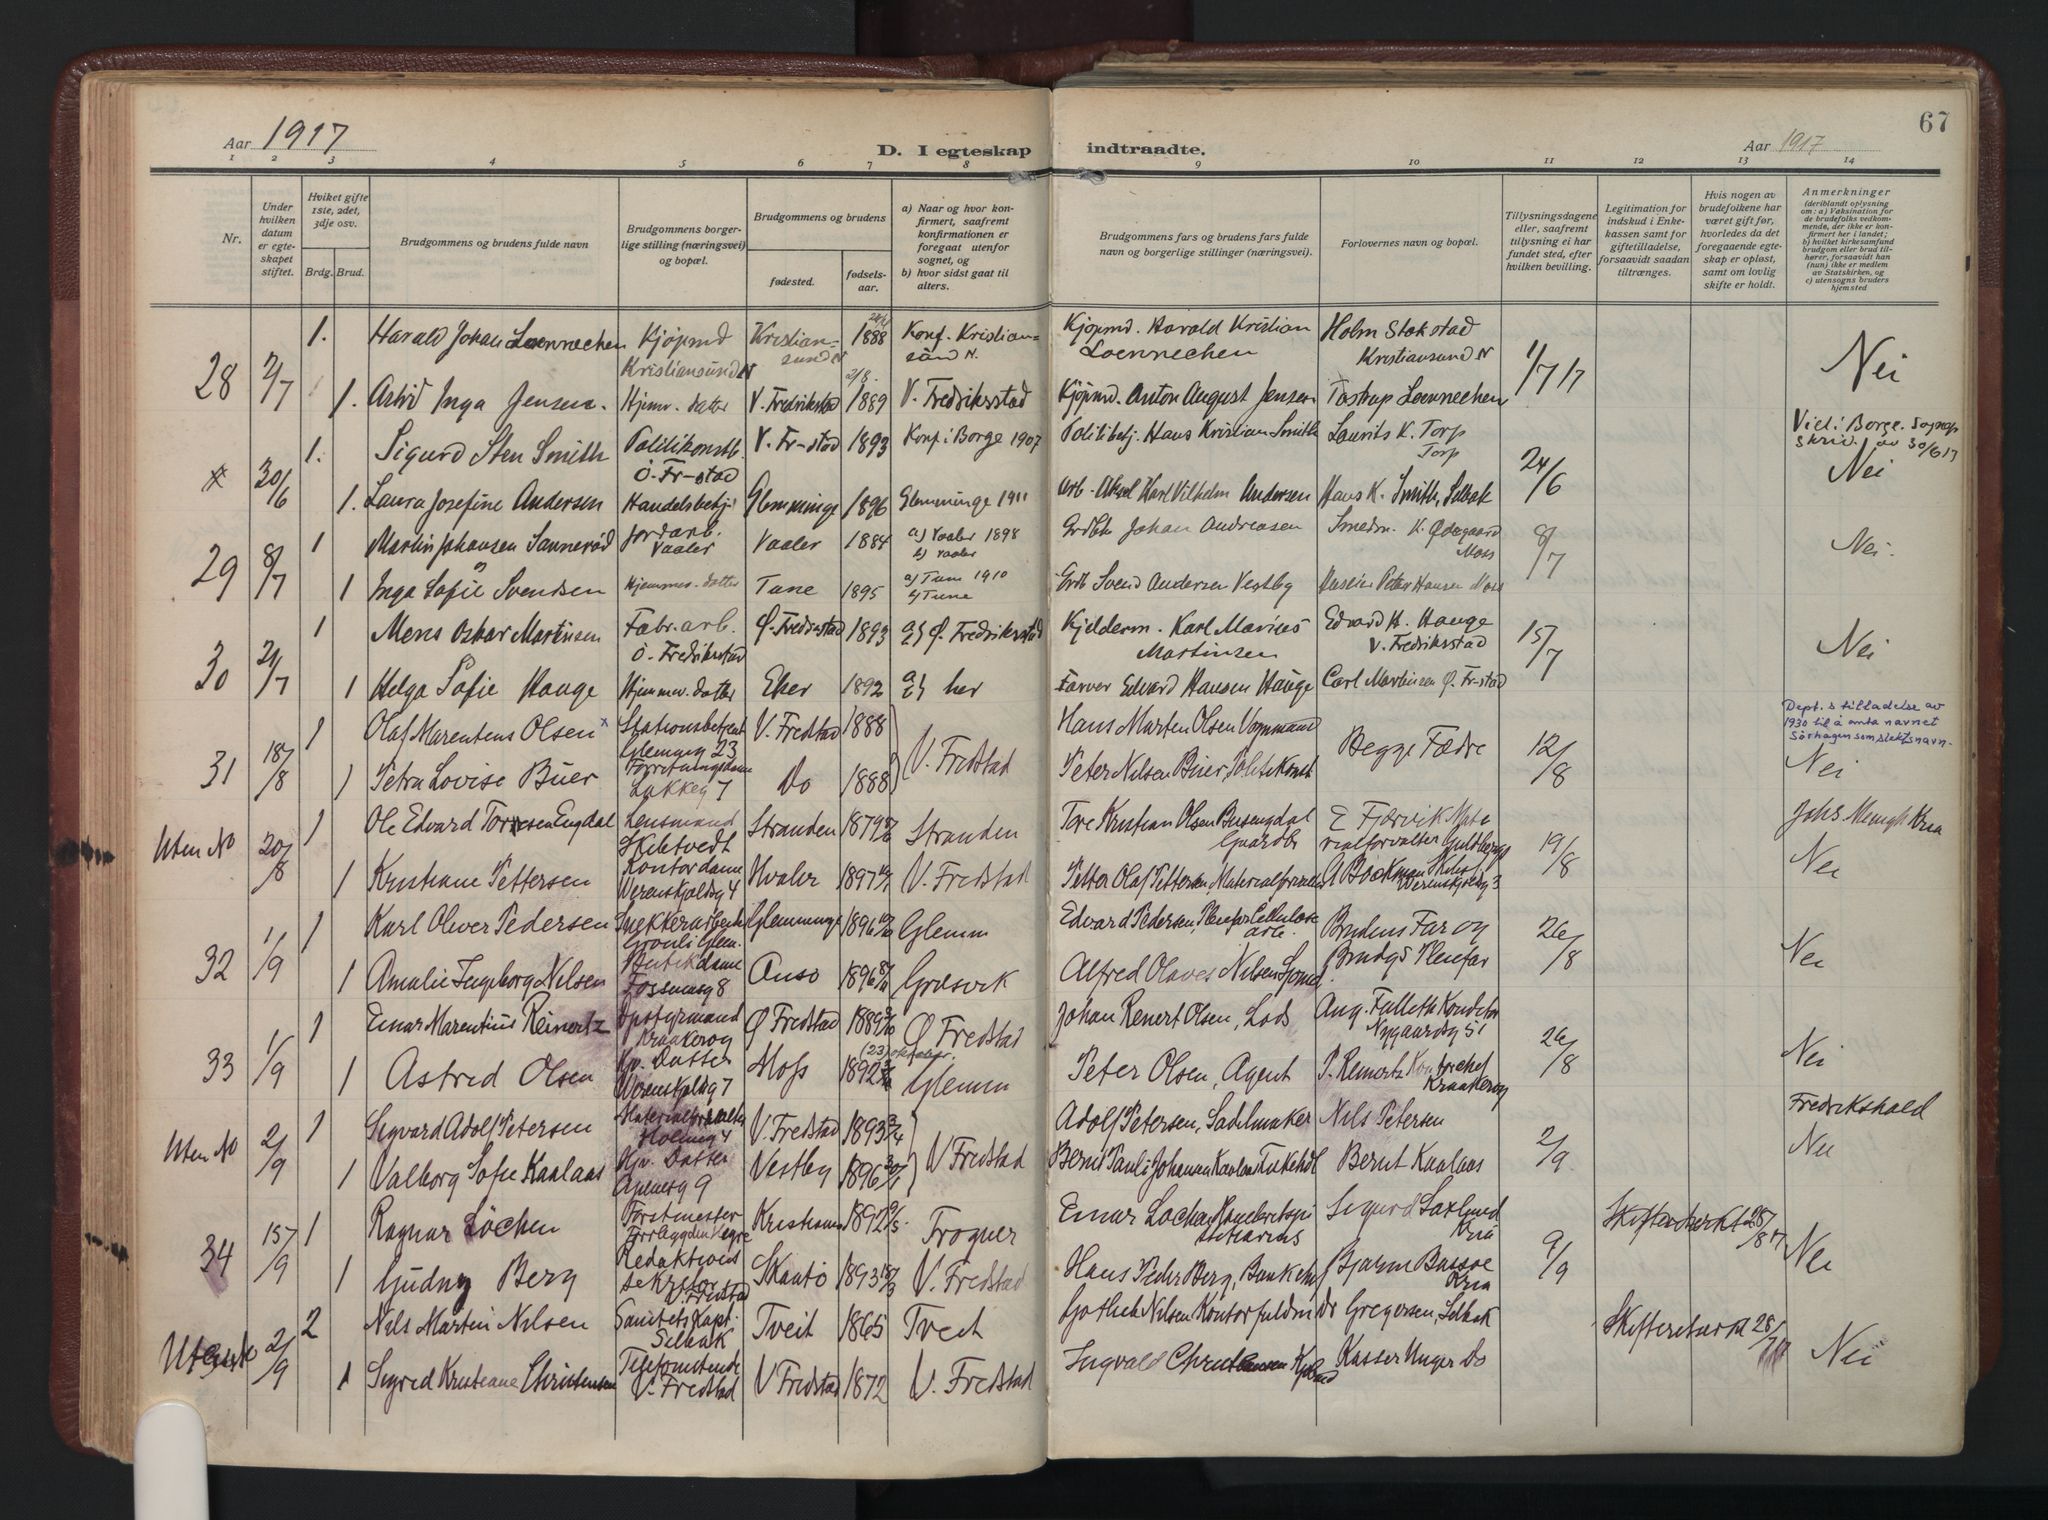 67
Aar 1917
D. I egteskap indtraadte.
Aar 1917
1 2 3 4 5 6 7 8 9 10 11 12 13 14
Nr.
Under hvilken datum er egteskapet stiftet.
Hviket gifte 1ste, 2det, 3dje osv.
Brdg. Brud.
Brudgommens og brudens fulde navn
Brudgommens borgerlige stilling (næringsvei) og bopæl.
Brudgommens og brudens
fødested.
fødselsaar.
a) Naar og hvor konfirmert, saafremt konfirmationen er foregaat utenfor sognet, og
b) hvor sidst gaat til alters.
Brudgommens fars og brudens fars fulde navn og borgerlige stillinger (næringsvei).
Forlovernes navn og bopæl.
Tillysningsdagene eller, saafremt tillysning ei har fundet sted, efter hvilken bevilling.
Legitimation for indskud i Enkekassen samt for giftetilladelse, forsaavidt saadan tiltrænges.
Hvis nogen av brudefolkene har været gift før, hvorledes da det foregaaende egteskap er opløst, samt om lovlig skifte er holdt.
Anmerkninger (deriblandt oplysning om: a) Vaksination for de brudefolks vedkommende, der ikke er konfirmert her i landet; b) hvilket kirkesamfund brudgom eller brud tilhører, forsaavidt han (hun) ikke er medlem av Statskirken, og c) utensogns bruders hjemsted
28 2/7 1. Harald Johan Loennechen Kjöpmd Kristiansund N Kristiansund N 1888 Konf. Kristiansund N. Kjöpmd. Harald Kristian Loennechen Holm Stokstad Kristiansund N 1/7 17 Nei
1. Astrid Inga Jensen. Hjemv. datter V. Fredrikstad 2/8. 1889 V. Fredriksstad Kjöpmd. Anton August Jensen Tostrup Loennechen
30/6 1. Sigurd Sten Smith Politikonstb. Ö. Fr-stad V. Fr-stad 1893 Konf i Borge 1907 Politibetj. Hans Kristian Smith Laurits K. Torp Torp 24/6 Viel i Borge. 30/6 17 Nei
1. Laura Josefine Andersen Handelsbetj. Glemminge 1896 Glemminge 1911 Arb. Aksel Karl Vilhelm Andersen Hans K. Smith, Selbak
29 8/7 1 Martin Johansen Sannerød Jordarb. Vaaler Vaaler 1884 a) Vaaler 1898 b) Vaaler Johan Andreasen Smedm. K. Ødegaard Moss 8/7 Nei.
1 Inga Sofie Svendsen Hjemmev. datter Tune 1895 a) Tune 1910 b) Tune Svend Andersen Vestby Peter Hansen Moss
30 21/7 1 Mens Oskar Martinsen Fabr. arb. Ö. Fredrikstad Ø. Fredrstad 1893 Ø. Fredriksstad Kjelderm. Karl Marius Martinsen Edvard H. Hauge V. Fredriksstad 15/7 Nei
1 Helga Sofie Hauge Hjemmev. datter Eker 1892 her Farver Edvard Hansen Hauge Carl Martinsen Ø. Fr-stad
31 18/8 1 Olaf Marentius Olsen x Stationsbetjent Glemmg 23 V. Fredstad 1888 V. Fredstad Hans Marten Olsen Vognmand Begge Fædre 12/8 Dept.s tilladelse av 1930 til å anta navnet Sörhagen som slektsnavn. Nei
1 Petra Lovise Buer Forretningsdame Lakkeg 7 Do 1888 Peter Nilsen Buer, Politikonst
Uten No 20/8 1 Ole Edvard Torresen Engdal Lensmand Skibtvedt Stranden 1879 Stranden Tore Kristian Olsen Gaardbr E Fjervik Materialforvalter 19/8 Johs. Mengh Kria Nei
1 Kristiane Pettersen Kontordame Werenskjoldsg 4 Hvaler 1897 V. Fredstad Petter Olaf Pettersen, Materialforvalter Werenskjoldsg 3
32 1/9 1 Karl Oliver Pedersen Glem. Glemminge 1896 Glemm Edvard Pedersen, Plenfar Cellulose arb. Brudens Far og Brudgs Plenfar 26/8 Nei
1 Amalie Ingeborg Nilsen Butikdame 8 Onsø 1896 Græsvik Alfred Olaves Nilsen
33 1/9 1 Einar Marentius Reinertz Opstyrmand Kraakerøy Ø Fredstad 1889 Ø Fredstad Johan Renert Olsen, Lods Aug. Falleth Konditor Nygaardsg 51 26/8 Nei
1 Astrid Olsen Hjv. Datter Werenskjoldsg 7 Moss (23) oktober. 1892 Glemm Peter Olsen, Agent P. Reinertz Kontorchef Kraakerøy
Uten No 2/9 1 Sigvard Adolf Petersen Materialforvalter 4 V. Fredstad 1893 3/4 V Fredstad Adolf Petersen, Sadelmaker Nils Petersen 2/9. Fredrikshald Nei
1 Valborg Sofie Kaalaas Hjv. Datter 9 Vestby 1896 Bernt Pauli Johansen Kaalaas Bernt Kaalaas
34 15/9 1 Ragnar Löchen Forstmester Kristiania 1892 Frogner Einar Lochen Sigurd Kria 9/9 Skifteattest 28/8 17 Nei
1 Gudny Berg Redaktions sekretær V. Fredstad Skaatö 1893 V. Fredstad Hans Peder Berg, Bankchef Bjarne Bassoe Kria
Uten No 2/9 2 Nils Martin Nilsen Sanitets Kapt. Selbak Tveit 1865 Tveit Nilsen Kontorfuldm Dr Gregersen, Selbak Skifteattest 28/ Nei
1 Sigrid Kristiane Christensen V. Fredstad V Fredstad 1872 V. Fredstad Ingvald Christensen Kasser Unger Do